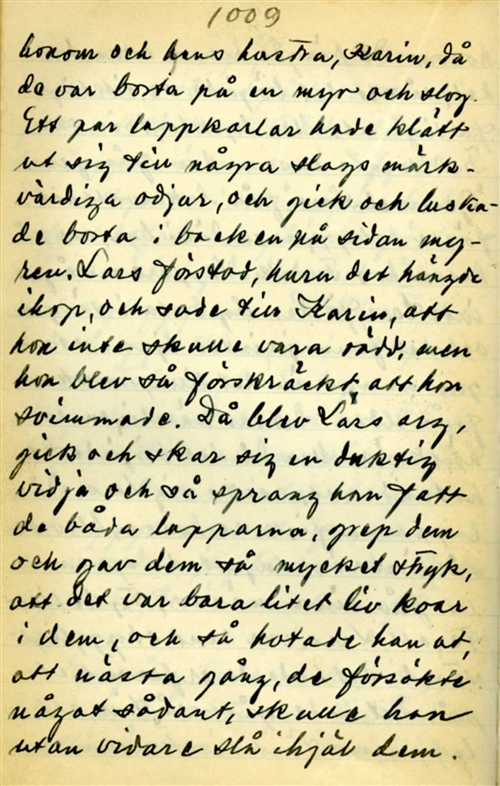 1009
honom och hens hustra, Karin, då
de var borta på en myr och slog.
Ett par lappkarlar hade klätt
ut sig till några slags märk-
värdiga odjur, och gick och luska-
de borta i backen på sidan my-
ren. Lars förstod, huru det hängde
ihop, och sade till Karin, att
hon inte skulle vara rädd, men
hon blev så förskräckt, att hon
svimmade. Då blev Lars arg,
gick och skar sig en duktig
vidja och så sprang han fatt
de båda lapparna, grep dem
och gav dem så mycket stryk,
att det var bara litet liv kvar
i dem, och så hotade han at,
att nästa gång, de försökte
något sådant, skulle han
utan vidare slå ihjäl dem.